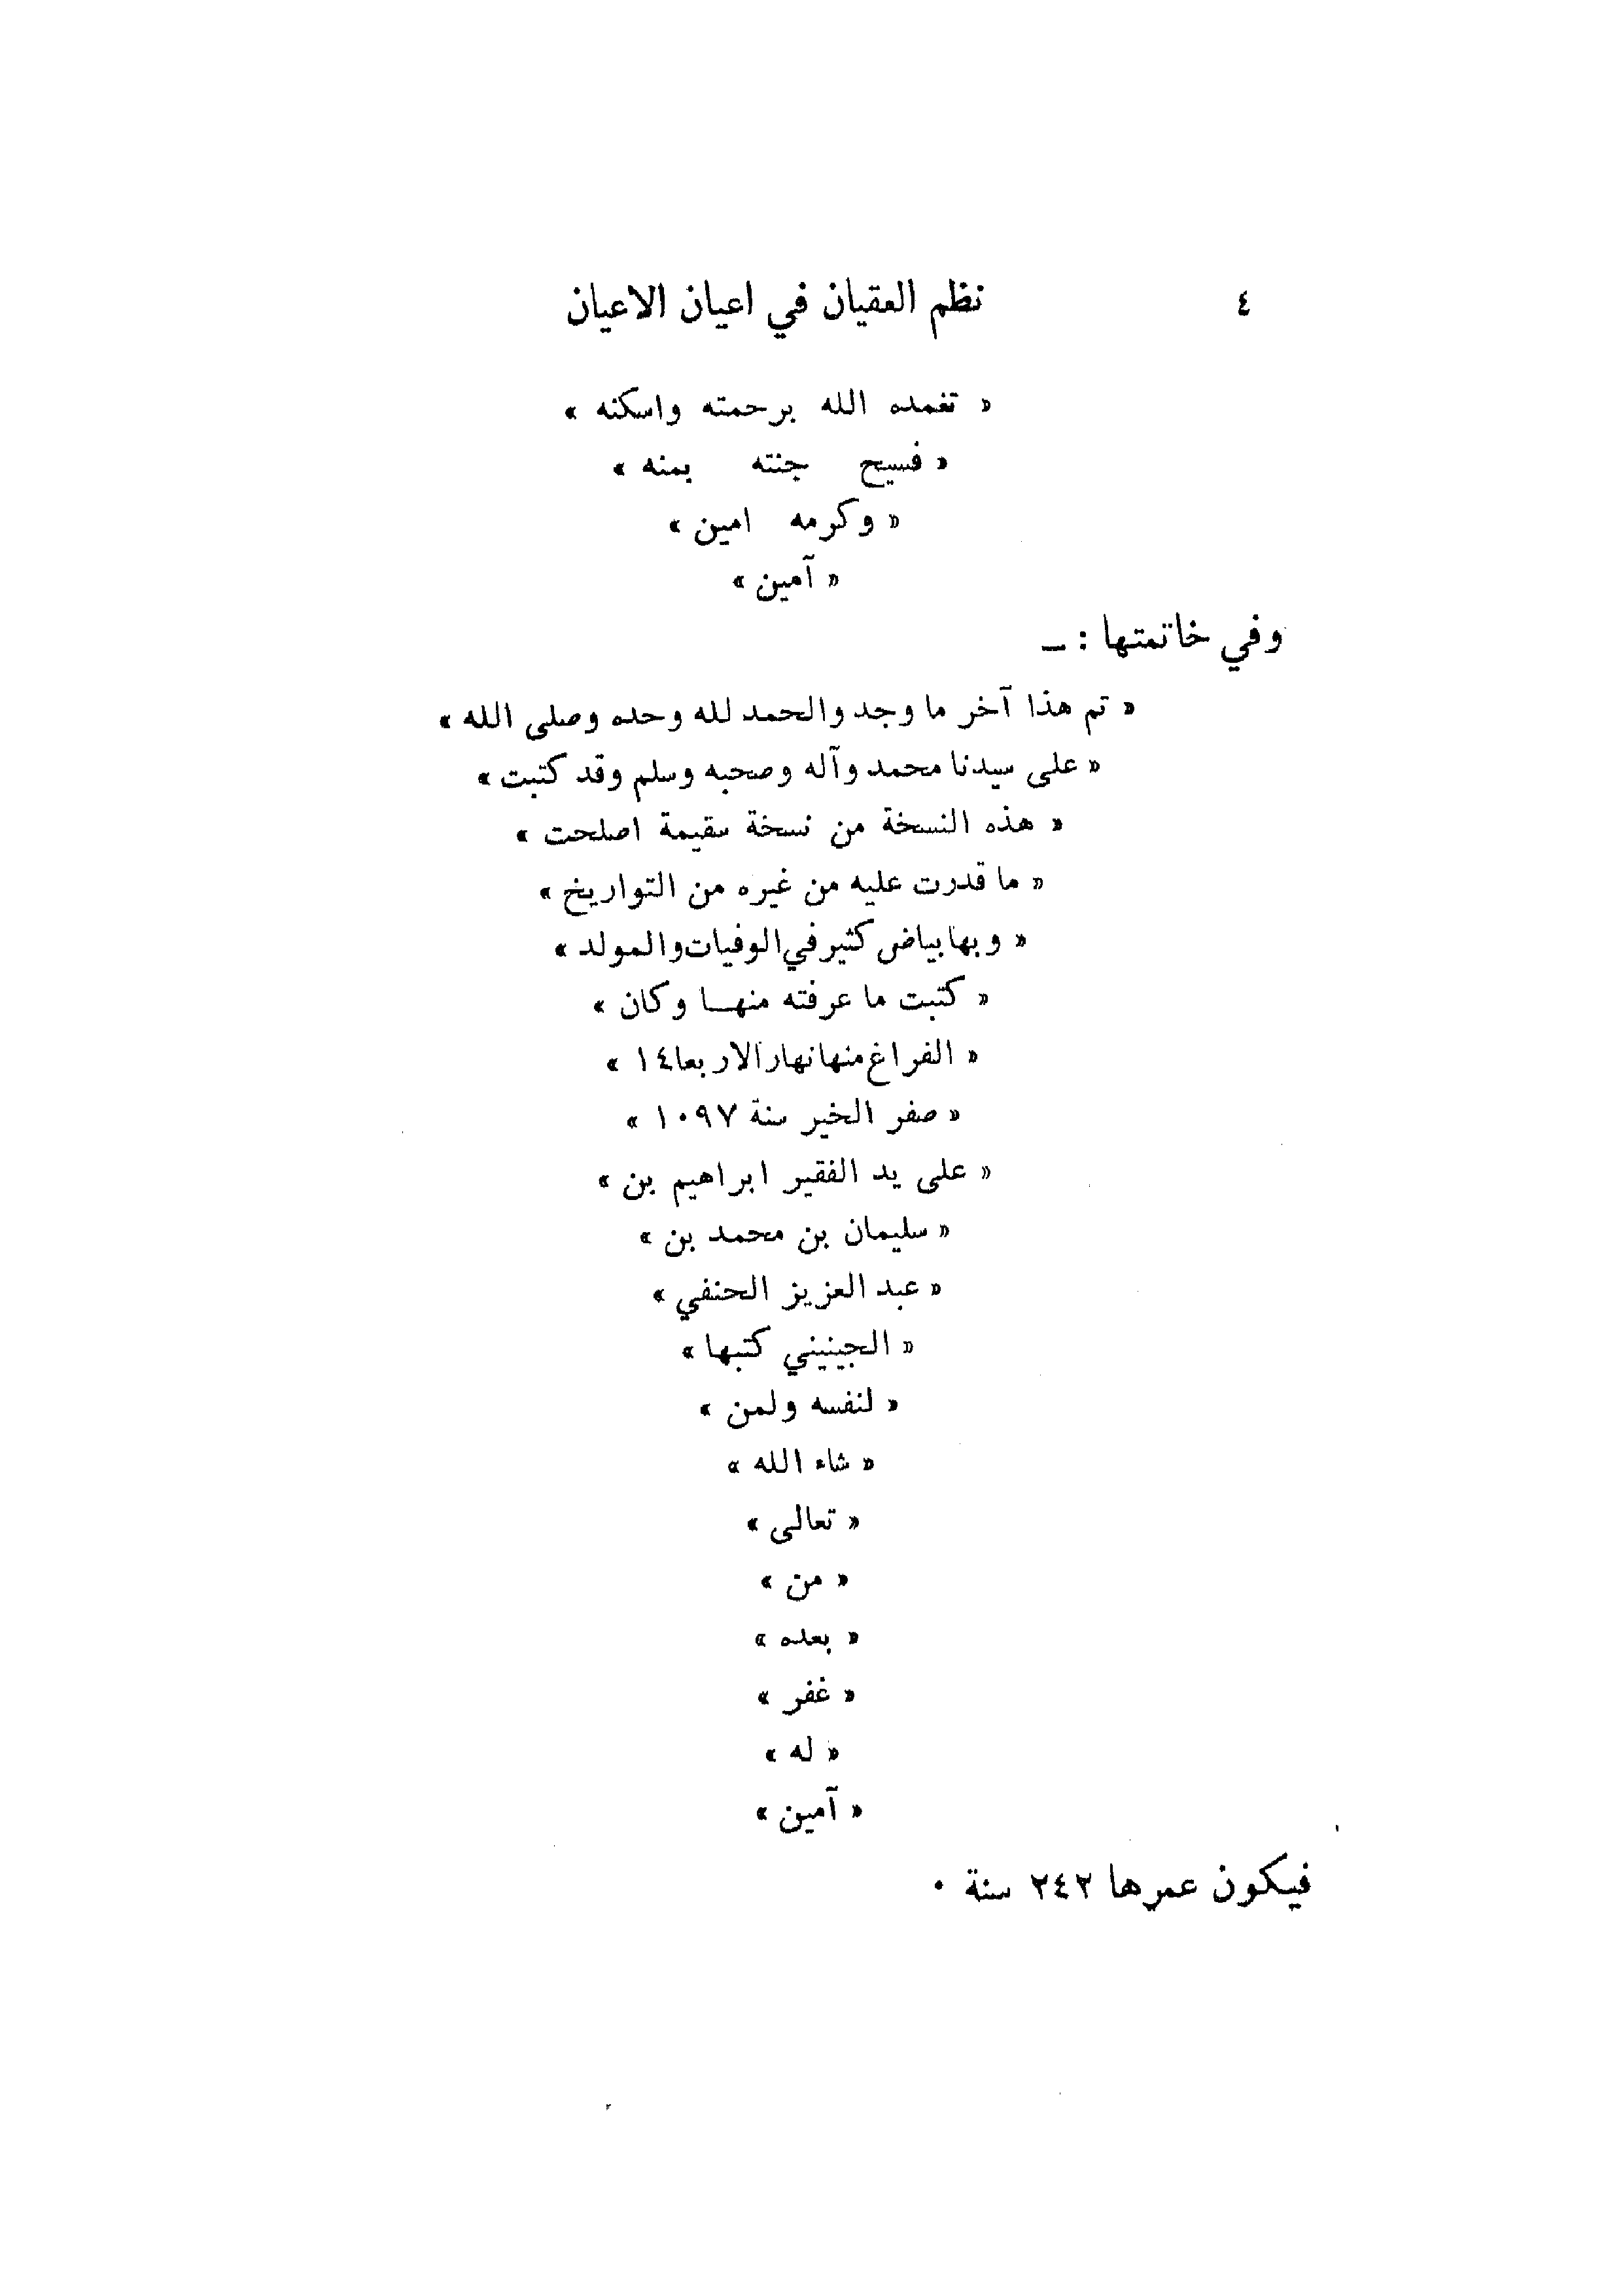 ٤ نظم العقيان في اعيان الاعيان
« تغمده الله برحمته واسكنه »
« فسيح جنته بمنه »
« وكرمه امين »
« آمين »
وفي خاتمتها : —
« تم هذا آخر ما وجد والحمد لله وحده وصلى الله »
« على سيدنا محمد وآله وصحبه وسلم وقد كتبت »
« هذه النسخة من نسخة سقيمة اصلحت »
« ما قدرت عليه من غيره من التواريخ »
« وبها بياض كثير في الوفيات والمولد »
« كتبت ما عرفته منهــا وكان »
« الفراغ منها نهار الاربعا ١٤ »
« صفر الخير سنة ١٠٩٧ »
« على يد الفقير ابراهيم بن »
« سليمان بن محمد بن »
« عبد العزيز الحنفي »
« الجينيني كتبها »
« لنفسه ولمن »
« شاء الله »
« تعالى »
« من »
« بعده »
« غفر »
« له »
« آمين »
فيكون عمرها ٢٤٢ سنة ٠